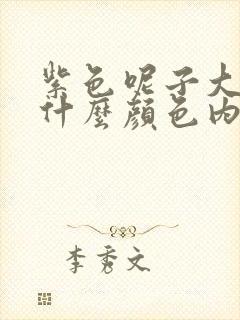 紫色呢子大
什麼顏色內
李秀文